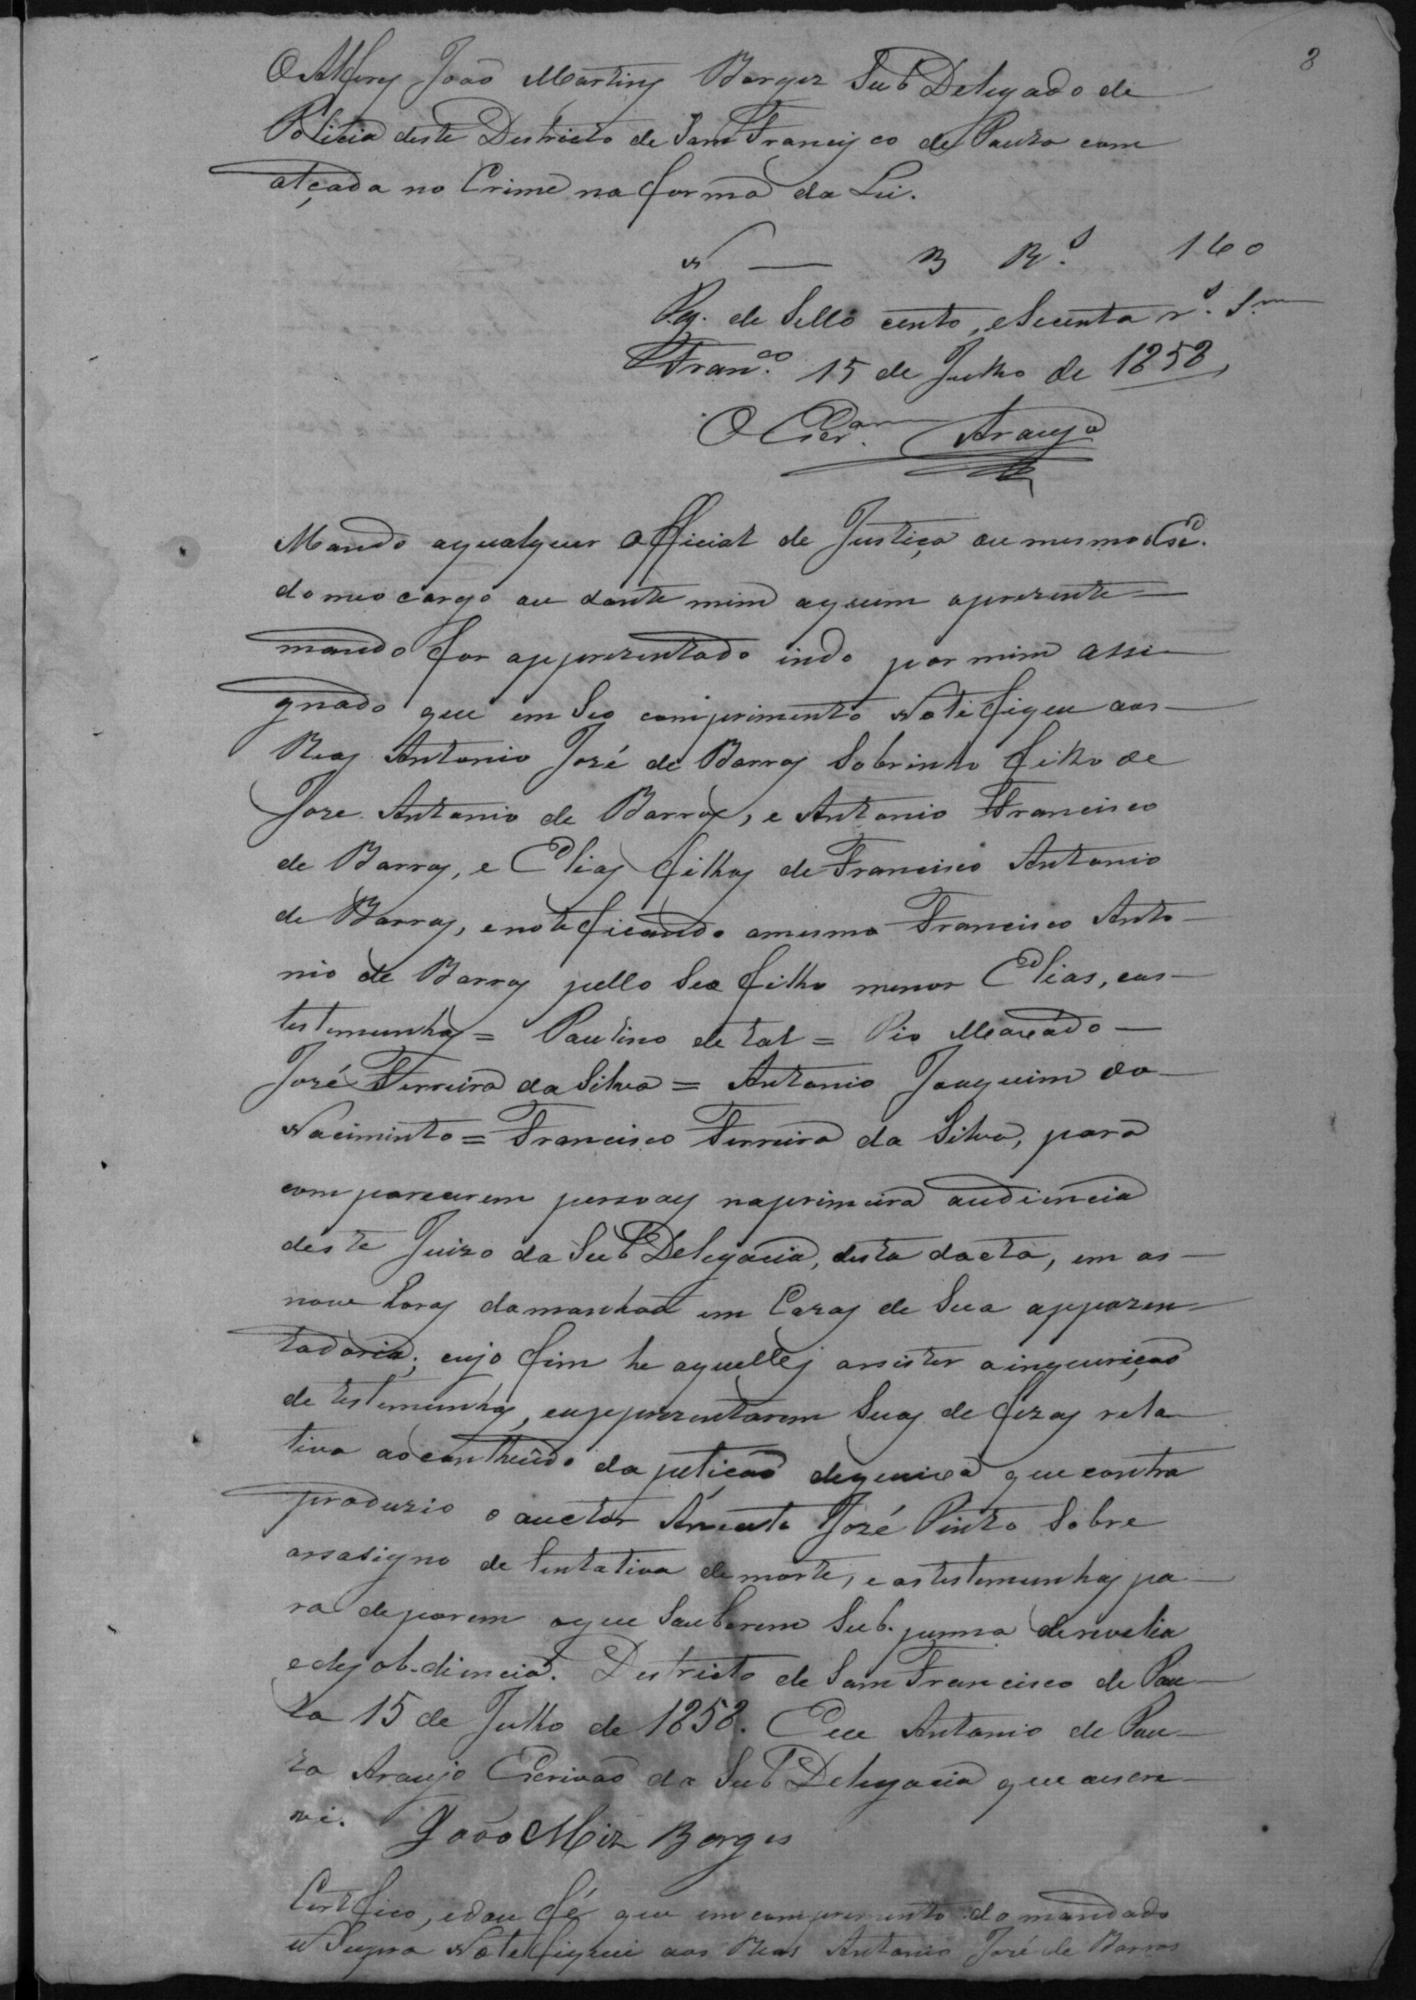 8
O Alferes João Martins Borges Sub Delegado de
Policia deste Destricto de Sam Francisco de Paula com
alçada no Crime na forma da Lei.
N — 3 Rs. 160
Pg. de Sello cento, e Secenta rs. Sm
Franco. 15 de Julho de 1858,
O Escram. Araujo
Mando aqualquer Official de Justiça ou mesmo Esc.
do meo cargo ou dante mim aquem aprezente
mando for apprezentado indo por mim assi
gnado que em Seo comprimento Notifique aos
Reos Antonio José de Barros Sobrinho filho de
Joze Antonio de Barros, e Antonio Francisco
de Barros, e Elias filhos de Francisco Antonio
de Barros, enoteficando omesmo Francisco Anto
nio de Barros pello Seo filho menor Elias, eas
testemunhas = Paulino de tal = Pio Macêdo
José Ferreira da Silva = Antonio Joaquim do
Nacimento = Francisco Ferreira da Silva, para
comparecerem pesoas naprimeira audiencia
deste Juizo da Sub Delegacia, desta dacta, em as
nove horas damanhaã em Cazas de Sua appozen
tadoria; cujo fim he aquelles assister ainqueriçaõ
de testemunhas, eapprezentarem Suas defezas rela
tiva aocontheûdo da petiçaõ dequeixa que contra
produzio o auctor José Pinto Sobre
de tentativa demorte, e astestemunhas pa
ra deporem oque Souberem Sub. penna derevelia
edesobdiencia. Destricto de Sam Francisco de Pau
la 15 de Julho de 1858. Eu Antonio de Pau
la Araujo Escrivaõ da Sub Delegacia que oescre
vi. João Miz Borges
Certifico, edou fé que emcomprimento domandado
Supra Notefiquei aos Reos Antonio José de Barros